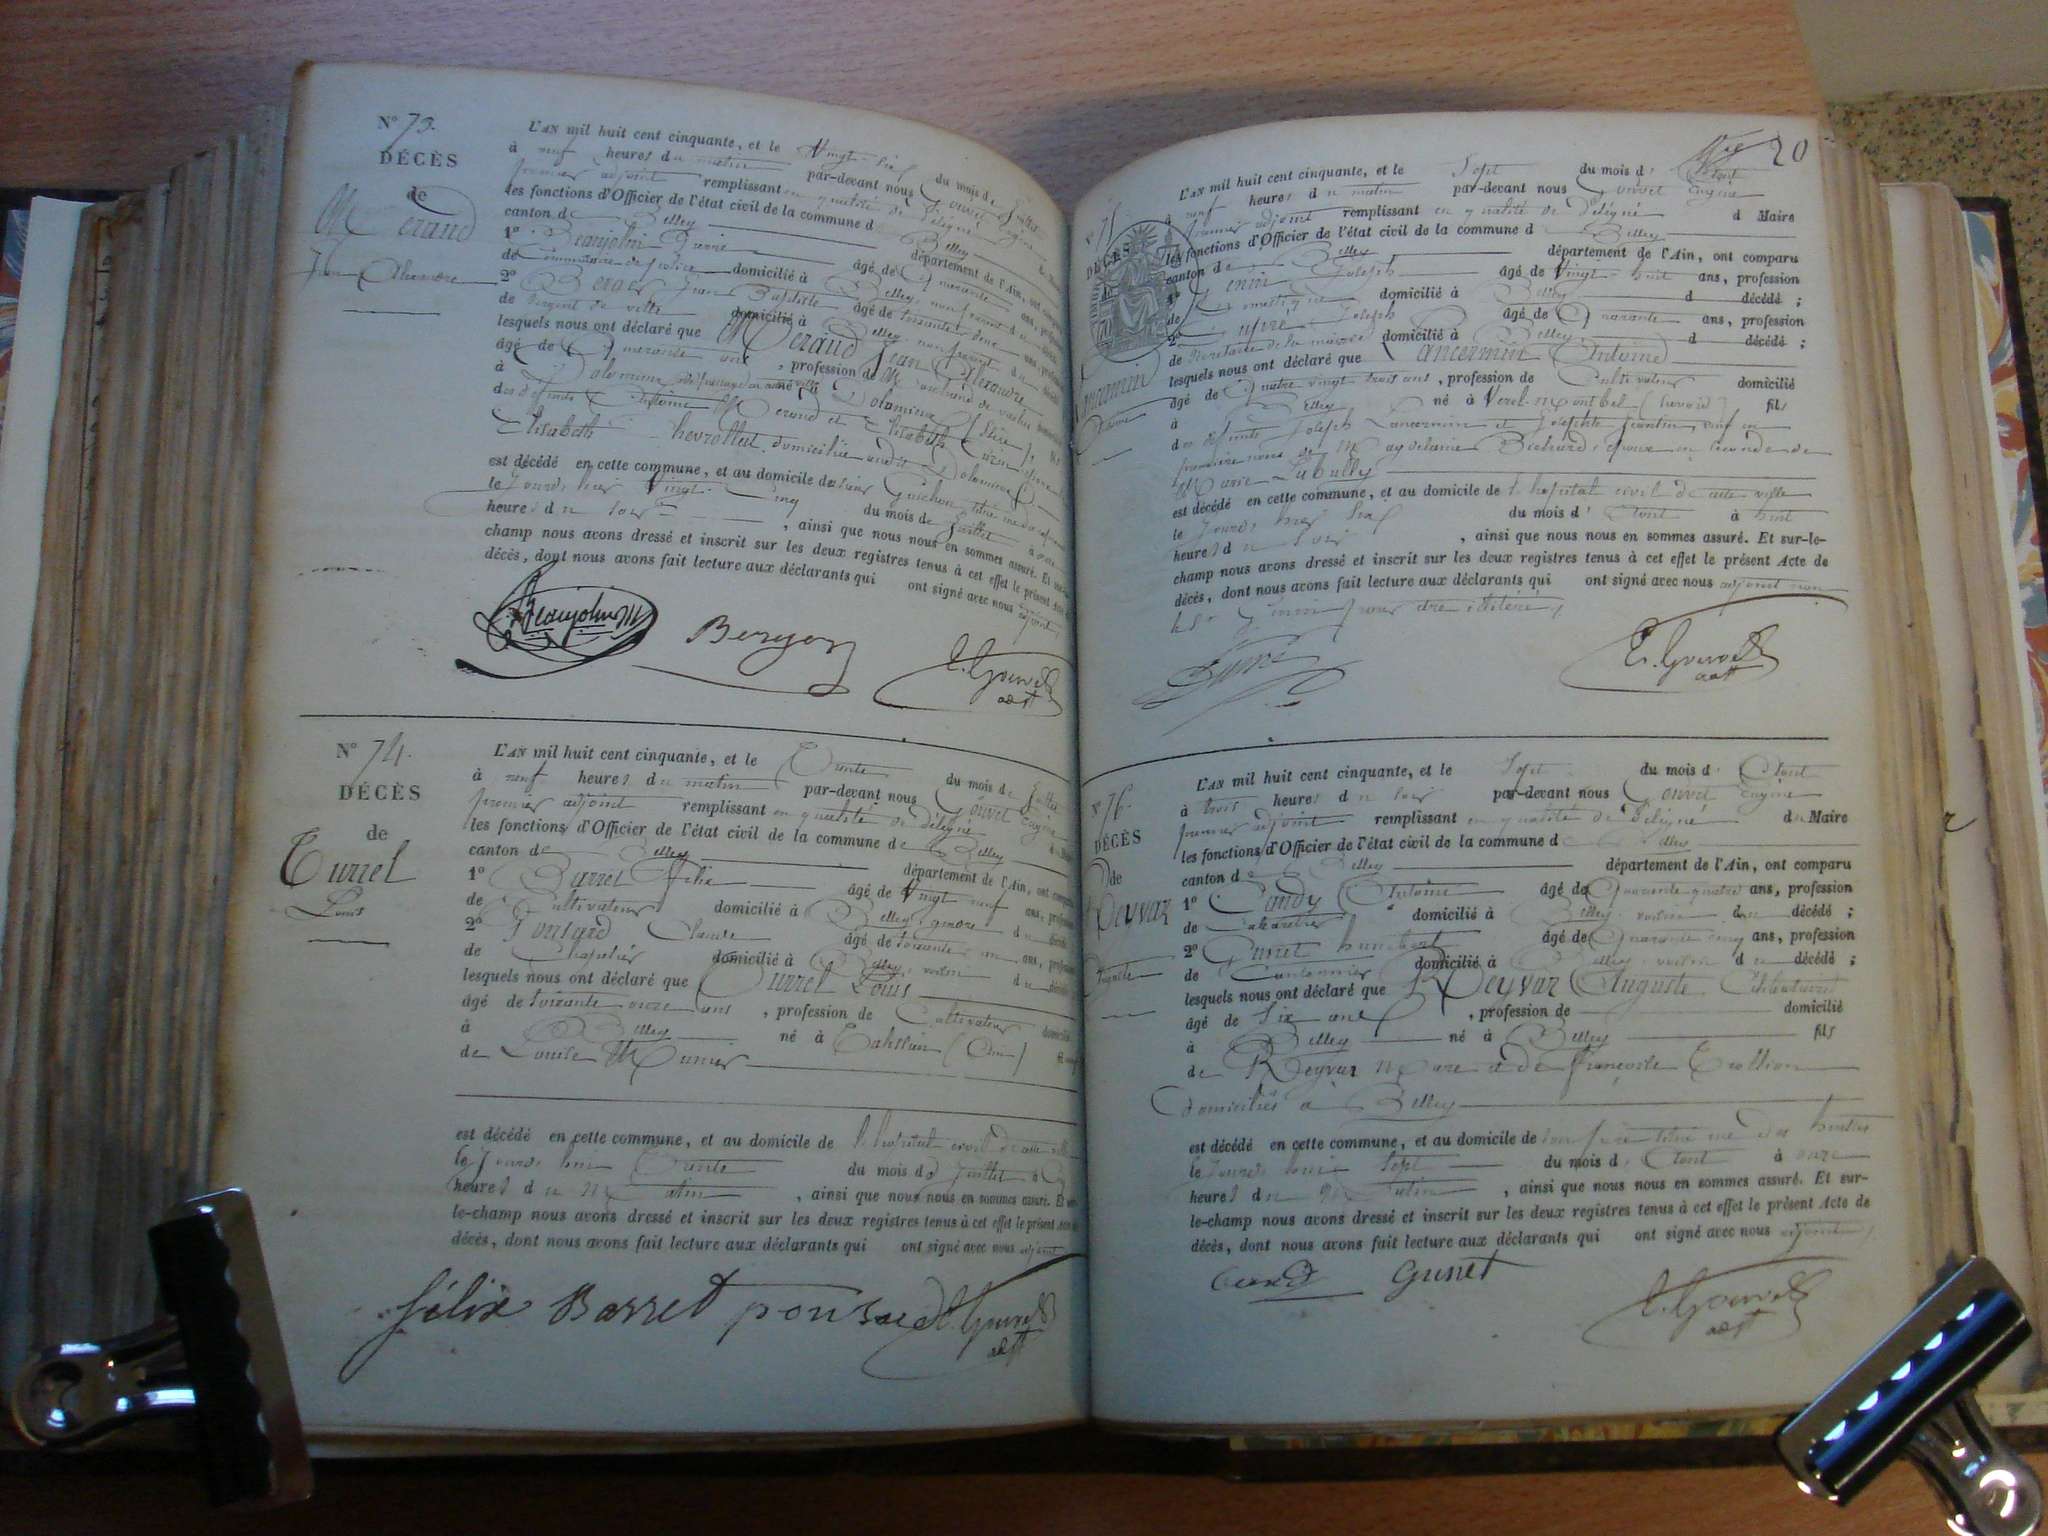 N° 73.
DÉCÈS
de
Meraud
Jean Alexandre
L'AN mil huit cent cinquante, et le Vingt-six du mois de Juillet
à neuf heures du matin par-devant nous Gouvet Eugène
premier adjoint remplissant en qualité de Délégué
les fonctions d'Officier de l'état civil de la commune de Belley
canton de Belley département de l'Ain, ont
1° Beaujolin âgé de Quarante ans,
de Commissaire de police domicilié à Belley, non parent du
2° Jean Baptiste âgé de soixante
de Sergent de ville domicilié à Belley non parent
lesquels nous ont déclaré que Meraud Jean Alexandre
âgé de Quarante ans, profession de Marchand de
à Dolomieu né à Dolomieu (Isère)
des défunts Antoine Meraud et Elisabeth
Elisabeth domiciliée audit Dolomieu
est décédé en cette commune, et au domicile du sieur Guichon
le jourd'hier Vingt-Cinq du mois de Juillet à
heures du soir, ainsi que nous nous en sommes assuré. Et
champ nous avons dressé et inscrit sur les deux registres tenus à cet effet le présent Acte
décès, dont nous avons fait lecture aux déclarants qui ont signé avec nous adjoint
Beaujolin
E. Gouvet
adjt
N° 74.
DÉCÈS
de
Turrel
Louis
L'AN mil huit cent cinquante, et le Trente du mois de Juillet
à neuf heures du matin par-devant nous Gouvet Eugène
premier adjoint remplissant en qualité de Délégué
les fonctions d'Officier de l'état civil de la commune de Belley
canton de Belley département de l'Ain, ont comparu
1° Barret Félix âgé de Vingt neuf ans,
de Cultivateur domicilié à Belley du
2° Ponsard Claude âgé de soixante un ans,
de Chapelier domicilié à Belley, voisin du
lesquels nous ont déclaré que Turrel Louis
âgé de soixante onze ans, profession de Cultivateur domicilié
à Belley né à (Ain)
de Louise Munier
est décédé en cette commune, et au domicile de l'hopital civil de cette ville
le jourd'hui Trente du mois de Juillet à
heures du Matin, ainsi que nous nous en sommes assuré. Et
le-champ nous avons dressé et inscrit sur les deux registres tenus à cet effet le présent Acte
décès, dont nous avons fait lecture aux déclarants qui ont signé avec nous adjoint
félix Barret ponsard E. Gouvet
adjt
20
N° 75.
DÉCÈS
de
Lancermin
Antoine
L'AN mil huit cent cinquante, et le Sept du mois d'Août
à neuf heures du matin par-devant nous Gouvet Eugène
premier adjoint remplissant en qualité de Délégué d Maire
les fonctions d'Officier de l'état civil de la commune d Belley
canton de Belley département de l'Ain, ont comparu
1° Joseph âgé de Vingt-huit ans, profession
de domestique domicilié à Belley d décédé ;
2° Joseph âgé de Quarante ans, profession
de Secrétaire de la mairie domicilié à Belley d décédé ;
lesquels nous ont déclaré que Lancermin Antoine
âgé de Quatre vingt trois ans, profession de Cultivateur domicilié
à Belley né à Verel-Montbel (Savoie) fils
des défunts Joseph Lancermin et Josephte veuf en
première noces de Magdelaine époux en seconde de
Marie
est décédé en cette commune, et au domicile de l'hopital civil de cette ville
le jourd'hier Six du mois d'Août à huit
heures du Soir, ainsi que nous nous en sommes assuré. Et sur-le-
champ nous avons dressé et inscrit sur les deux registres tenus à cet effet le présent Acte de
décès, dont nous avons fait lecture aux déclarants qui ont signé avec nous adjoint non
le Sr pour être illitéré,
E. Gouvet
adjt
N° 76.
DÉCÈS
de
Reyvar
Auguste
L'AN mil huit cent cinquante, et le Sept du mois d'Août
à trois heures du soir par-devant nous Gouvet Eugène
premier adjoint remplissant en qualité de Délégué du Maire
les fonctions d'Officier de l'état civil de la commune d Belley
canton d Belley département de l'Ain, ont comparu
1° Candy Antoine âgé de Quarante quatre ans, profession
de Cabaretier domicilié à Belley voisin du décédé ;
2° Gunet humbert âgé de Quarante cinq ans, profession
de Cantonnier domicilié à Belley, voisin du décédé ;
lesquels nous ont déclaré que Reyvar Auguste
âgé de Six ans, profession de domicilié
à Belley né à Belley fils
de Reyvar Marc et de Françoise Trollion
domiciliés à Belley
est décédé en cette commune, et au domicile de son père
le jourd'hui Sept du mois d'Août à onze
heures du Matin, ainsi que nous nous en sommes assuré. Et sur-
le-champ nous avons dressé et inscrit sur les deux registres tenus à cet effet le présent Acte de
décès, dont nous avons fait lecture aux déclarants qui ont signé avec nous adjoint,
Gunet
E. Gouvet
adjt